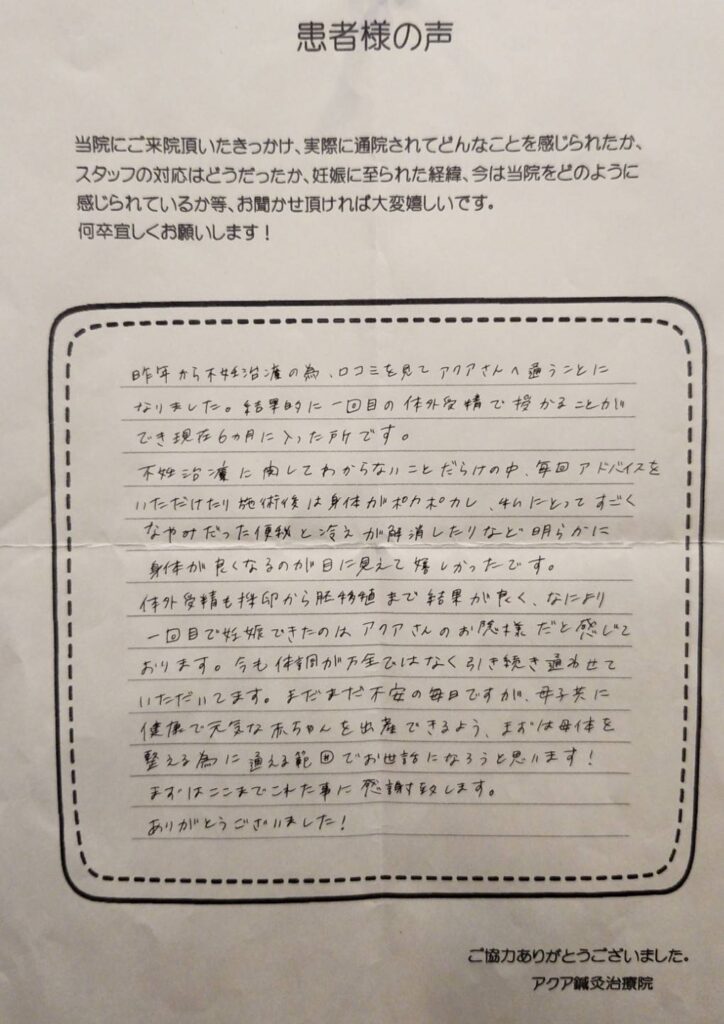 患者様の声
当院にご来院頂いたきっかけ、実際に通院されてどんなことを感じられたか、
スタッフの対応はどうだったか、妊娠に至られた経緯、今は当院をどのように
感じられているか等、お聞かせ頂ければ大変嬉しいです。
何卒宜しくお願いします！
昨年から不妊治療の為、口コミを見てアクアさんへ通うことに
なりました。結果的に一回目の体外受精で授かることが
でき現在6カ月に入った所です。
不妊治療に関してわからないことだらけの中、毎回アドバイスを
いただけたり施術後は身体がポカポカし、私にとってすごく
なやみだった便秘と冷えが解消したりなど明らかに
身体が良くなるのが目に見えて嬉しかったです。
体外受精も採卵から胚移植まで結果が良く、なにより
一回目で妊娠できたのはアクアさんのお陰様だと感じて
おります。今も体調が万全ではなく引き続き通わせて
いただいてます。まだまだ不安の毎日ですが、母子共に
健康で元気な赤ちゃんを出産できるよう、まずは母体を
整える為に通える範囲でお世話になろうと思います！
まずはここまでこれた事に感謝致します。
ありがとうございました！
ご協力ありがとうございました。
アクア鍼灸治療院